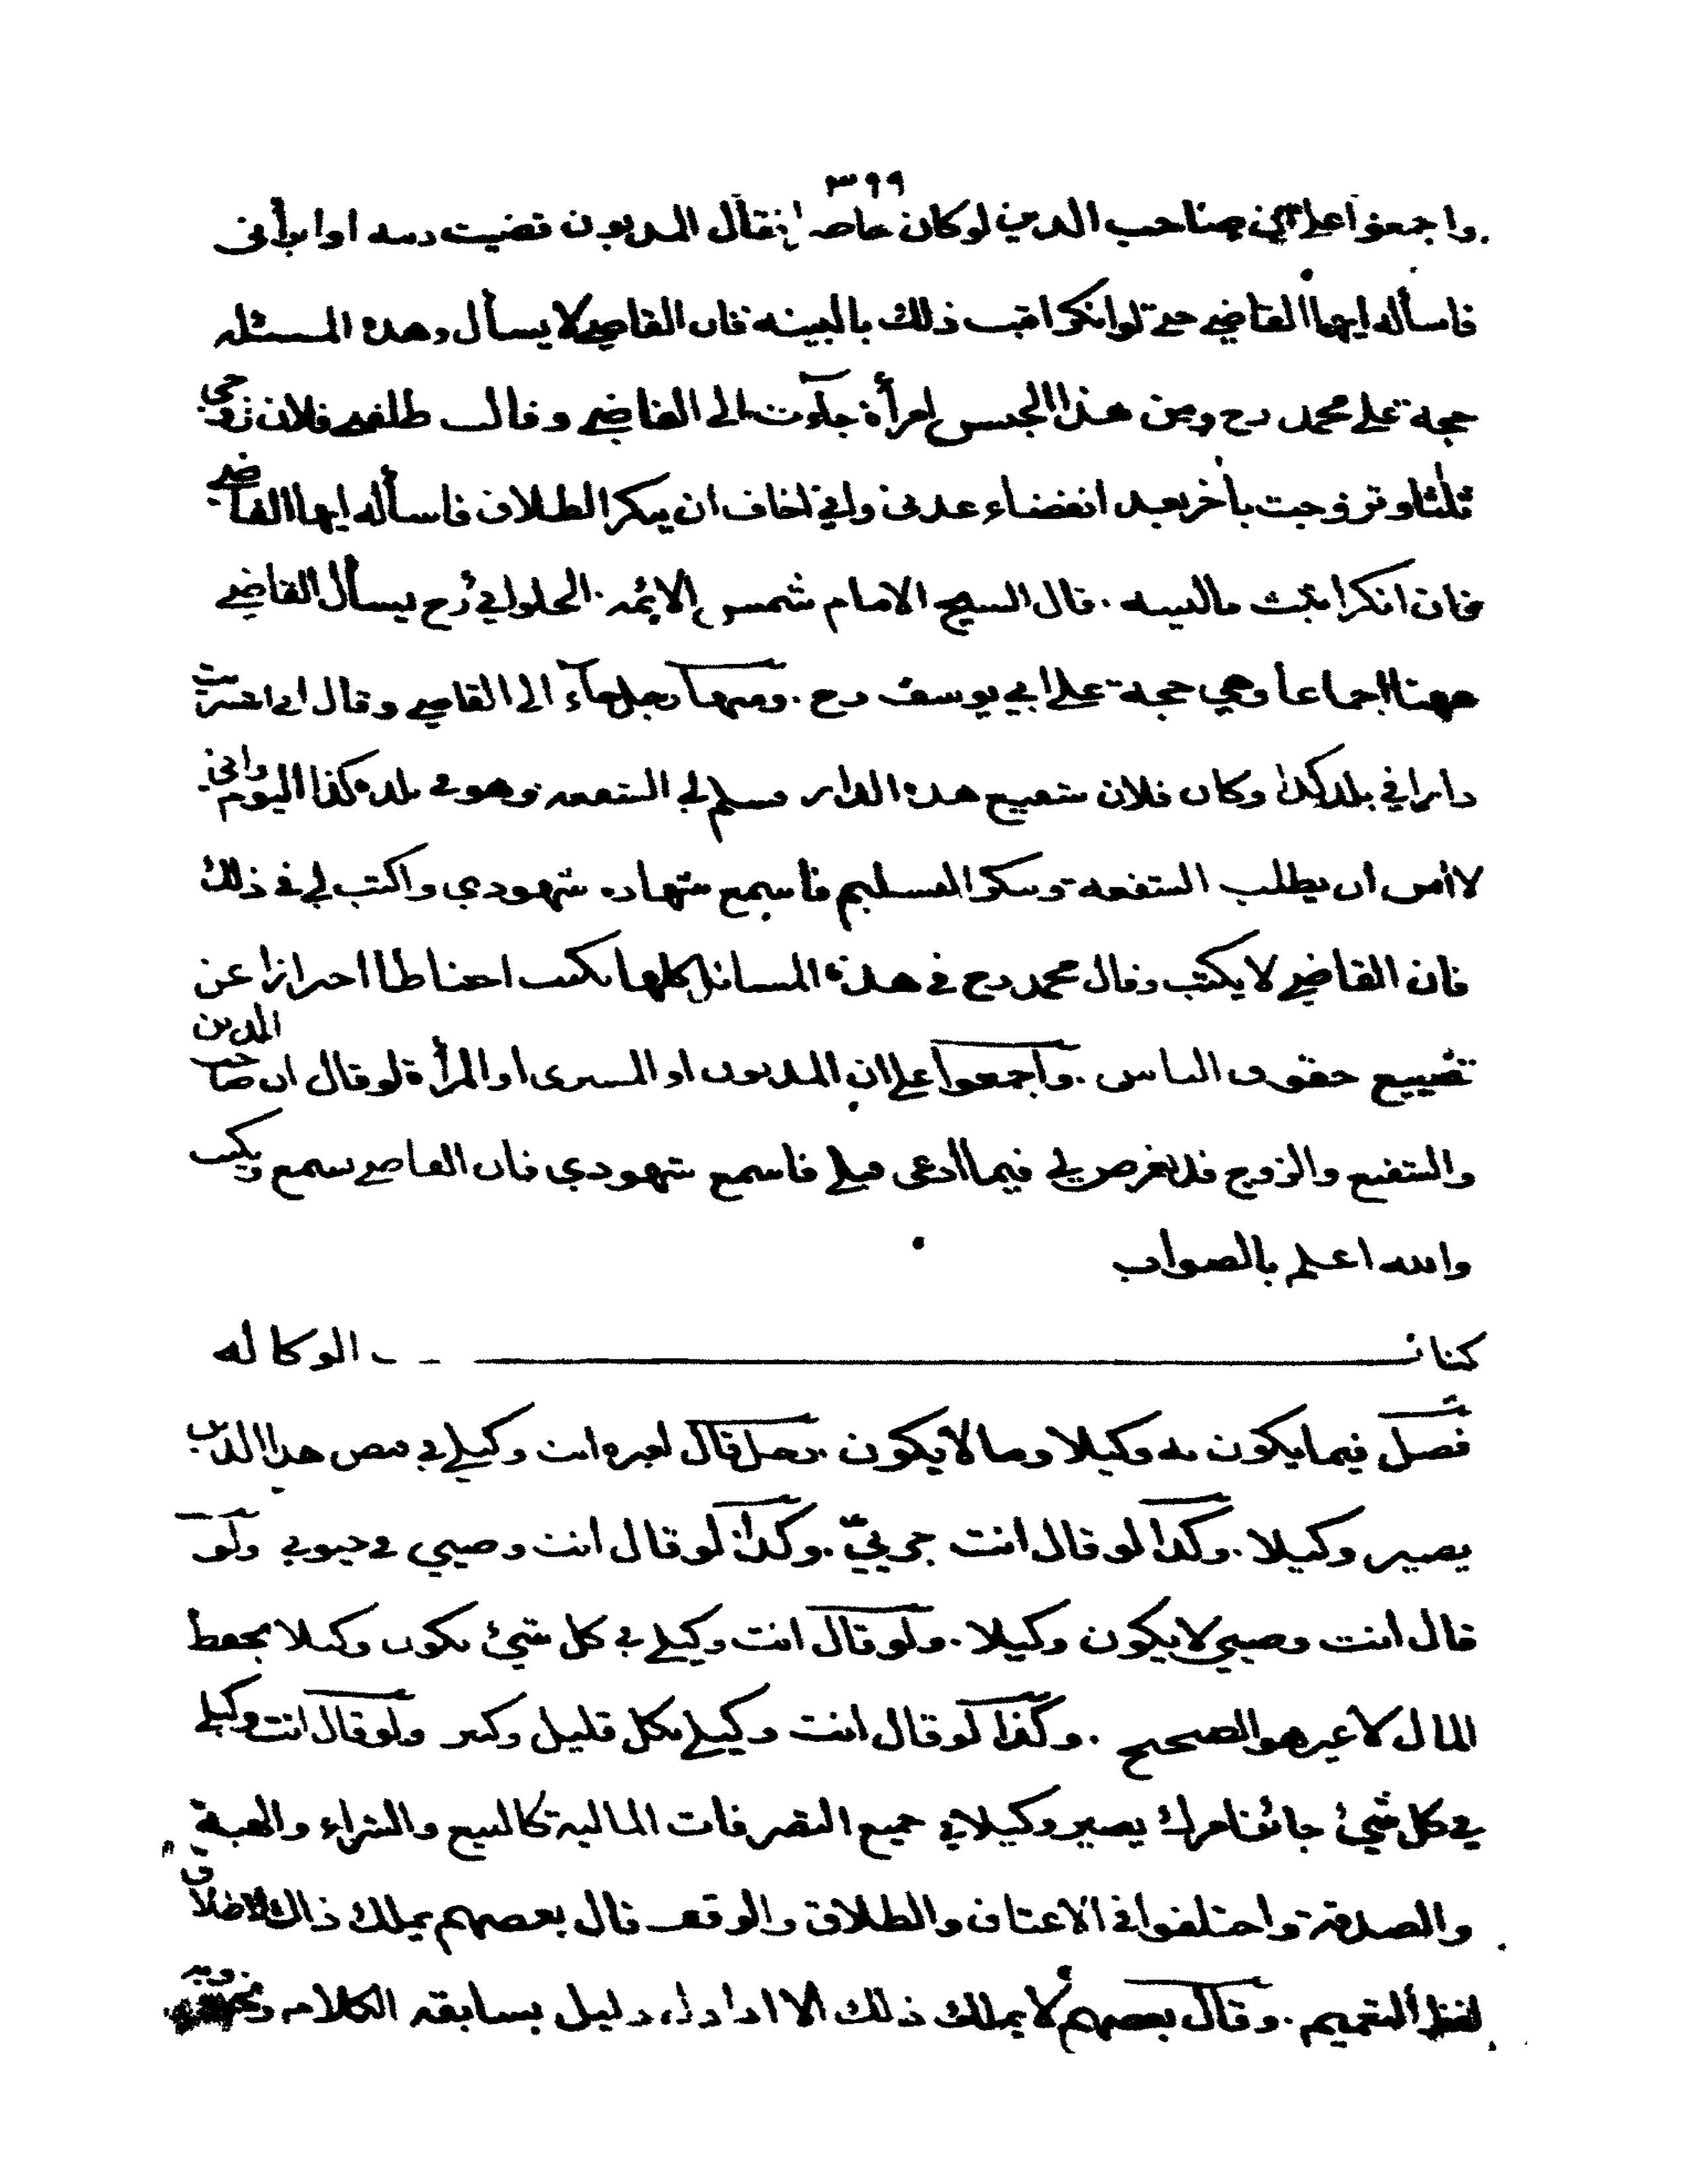 ٣٩٩
واجمعوا على ان صاحب الدين لو كان حاضرا فقال المديون قضيت دينه او ابرأنى
فاسأله ايها القاضي حتى لو انكر اثبت ذلك بالبينه فان القاضي لا يسأل وهذه المسئله
حجة على محمد رح ومن هذا الجنس امرأة جآءت الى القاضي وقالت طلقني فلان زوجي
ثلثا وتزوجت بأخر بعد انقضاء عدتى واني اخاف ان ينكر الطلاق فاسأله ايها القاضي
فان انكر اثبت بالبينه . قال الشيخ الامام شمس الائمه . الحلواني رح يسأل القاضي
ههنا اجماعا وهي حجة على ابي يوسف رح . ومنها رجل جآء الى القاضي وقال اني اشتريت
دارا في بلد كذا وكان فلان شفيع هذه الدار فسلم لي الشفعه وهو في بلدة كذا اليوم واني
لا امن ان يطلب الشفعه وينكر التسليم فاسمع شهاده شهودي واكتب لي في ذلك
فان القاضي لا يكتب وقال محمد رح في هذه المسائل كلها يكتب احتياطا احترازا عن
تضييع حقوق الناس . واجمعوا على ان المديون او المشترى او المرأة لو قال ان صاحب الدين
والشفيع والزوج قد تعرض لي فيما ادعى قبلي فاسمع شهودي فان القاضي يسمع ويكتب
والله اعلم بالصواب
كتاب الوكاله
فصل فيما يكون به وكيلا وما لا يكون . رجل قال لغيره انت وكيلي في قبض هذا الدين
يصير وكيلا . وكذا لو قال انت جريي . وكذا لو قال انت وصيي في حيوتي ولو
قال انت وصيي لا يكون وكيلا . ولو قال انت وكيلي في كل شيئ يكون وكيلا بحفظ
المال لا غير هو الصحيح . وكذا لو قال انت وكيلي بكل قليل وكثير ولو قال انت وكيلي
في كل شيئ جائز امرك يصير وكيلا في جميع التصرفات المالية كالبيع والشراء والهبة
والصدقة واختلفوا في الاعتاق والطلاق والوقف قال بعضهم يملك ذالك لاطلاق
لفظ التعميم . وقال بعضهم لا يملك ذلك الا اذا دل دليل بسابقه الكلام ونحوه